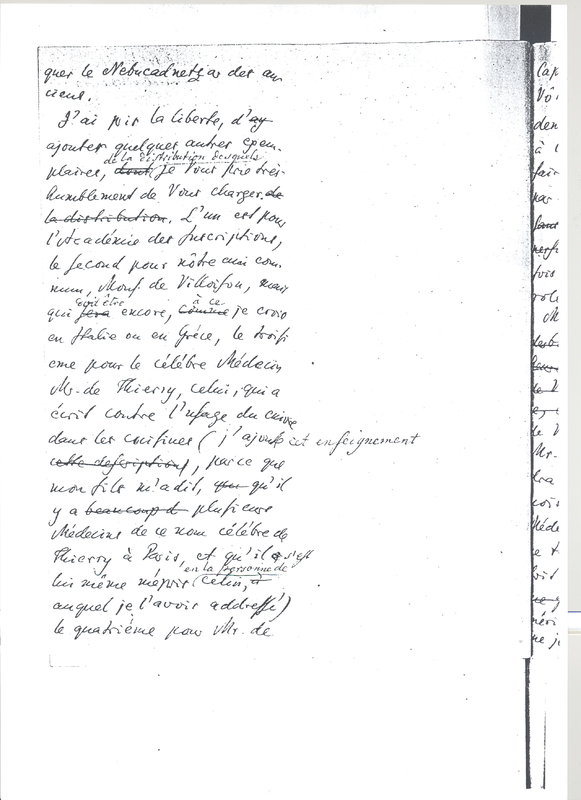 quer le Nebucadnetzar des an
ciens.
J'ai pris la liberte, d'ay
ajouter quelques autres exem-
de la distribution desquels
plaires, dont je Vous prie très-
humblement de Vous charger de
la distribution. L'un est pour
l'Académie des Inscriptions,
le second pour nôtre ami com-
mun, Mons. de Villoison, mais
doit être à ce
qui sera encore, comme je crois
en Italie ou en Gréce, le troisi
eme pour le célébre Médecin
Mr. de Thierry, celui, qui a
écrit contre l'usage du cuivre
dans les cuisines (j'ajoute cet enseignement
cette description, parce que
mon fils m'a dit, que qu'il
y a beaucoup d plusieurs
Médecins de ce nom célébre de
Thierry à Paris, et qu'il s'est
en la personne de
lui même mepris celui, à
auquel je l'avois addressé)
le quatriéme pour Mr. de
Vô
den
à l
fair
par
fois
M
de V
Mr.